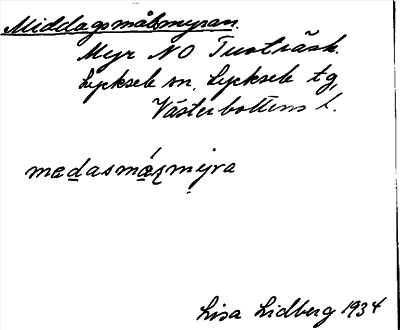 Middagsmålsmyran.
Myr NO Tuvträsk.
Lycksele sn, Lycksele tg,
Västerbottens l.
medasmázmyra
Lisa Lidberg 1934